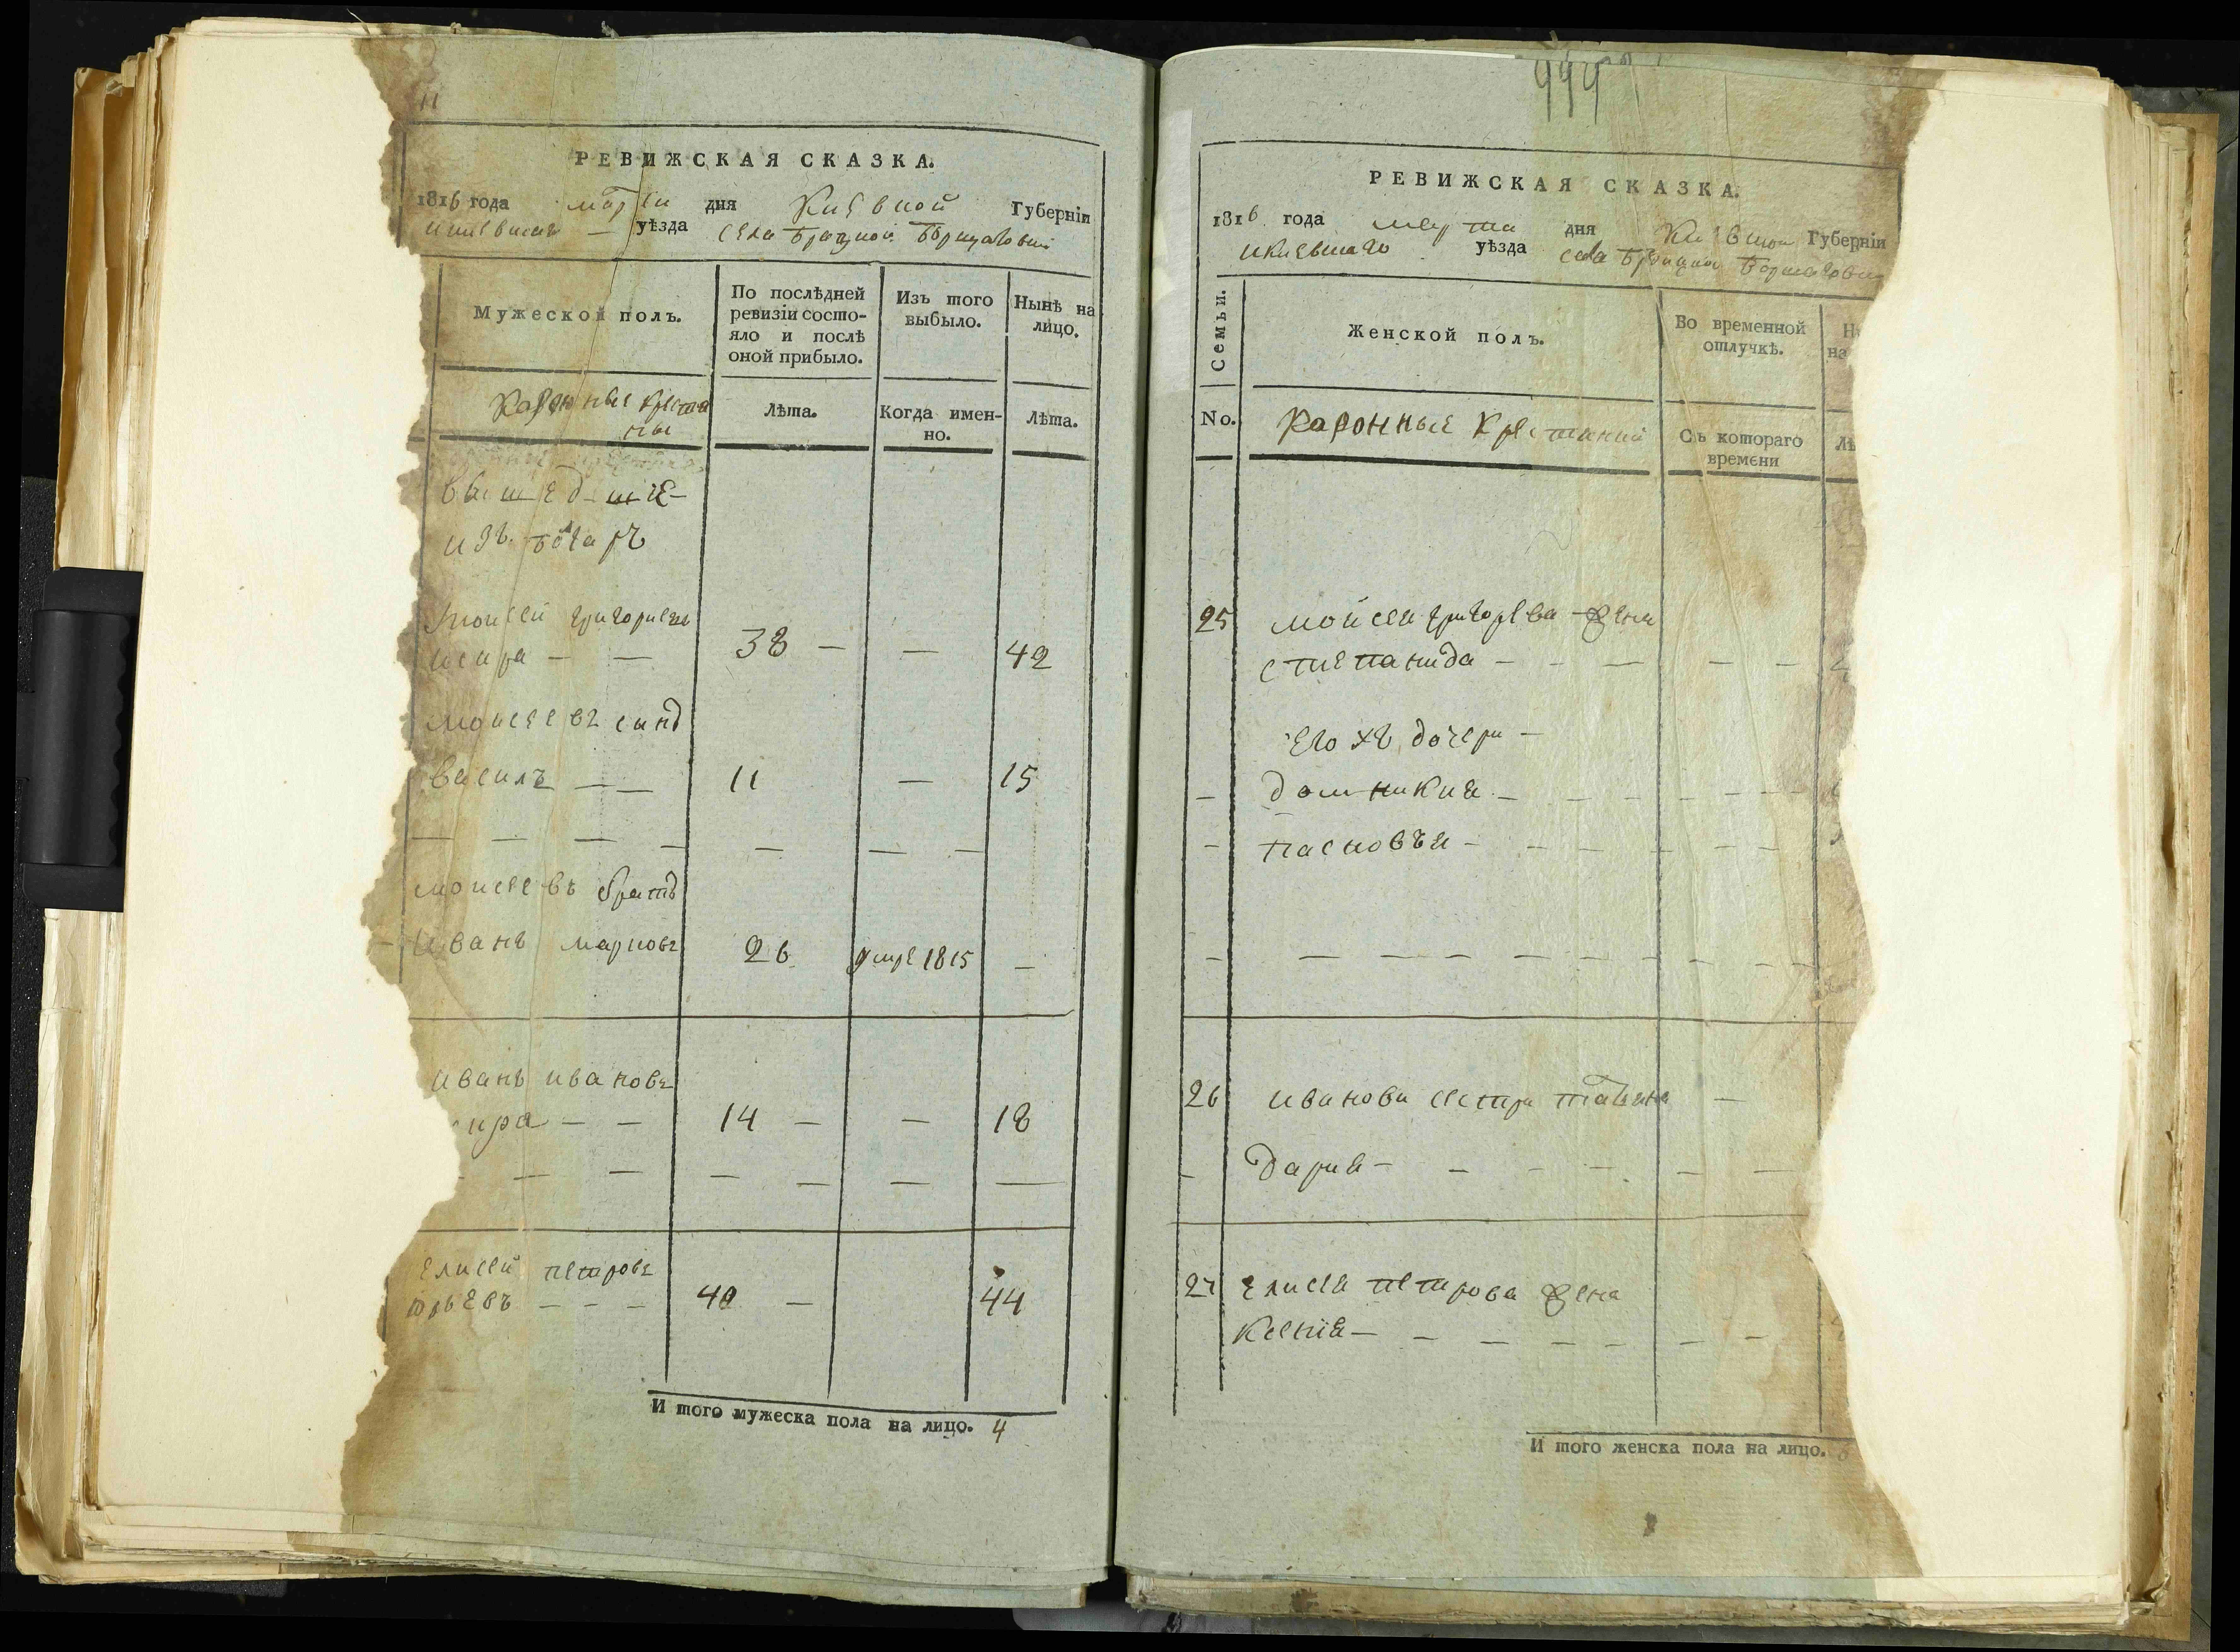 11
РЕВИЖСКАЯ СКАЗКА.
1816 года марта дня Киевской Губернїи
уѣзда села Братской Борщаговки
Мужеской полъ.
По послѣдней ревизїи состояло и послѣ оной прибыло.
Изъ того выбыло.
Нынѣ на лицо.
Казонные крестяны
Лѣта.
Когда именно.
Лѣта.
вышедшие
изъ
Моисей Григориевъ
38 — — 42
Моисеевъ сынъ
василъ — — 11 — 15
Моисеевъ братъ
Иванъ Марковъ 26 умре 1815 —
Иванъ Ивановъ
14 — — 18
Елисей петровъ
юрьевъ — — — 40 — 44
И того мужеска пола на лицо. 4
РЕВИЖСКАЯ СКАЗКА.
1816 года марта дня Киевской Губернїи
икиевскаго уѣзда села Братской Борщаговки
Семьи.
Женской полъ.
Во временной отлучкѣ.
No.
Казонные Крестяний
Съ котораго времени
25 Моисея григорева жена
степанида — — — — —
Его жъ дочери —
— домникия — — — — — —
— — — — — —
26 Иванова сестра татияна —
— Дария — — — — — —
27 Елисея петрова жена
Ксенїя — — — — — — —
И того женска пола на лицо.